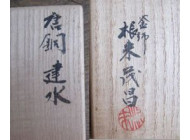 唐銅 建水
釜師
根来茂昌